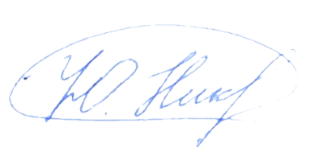 Ю. Ник